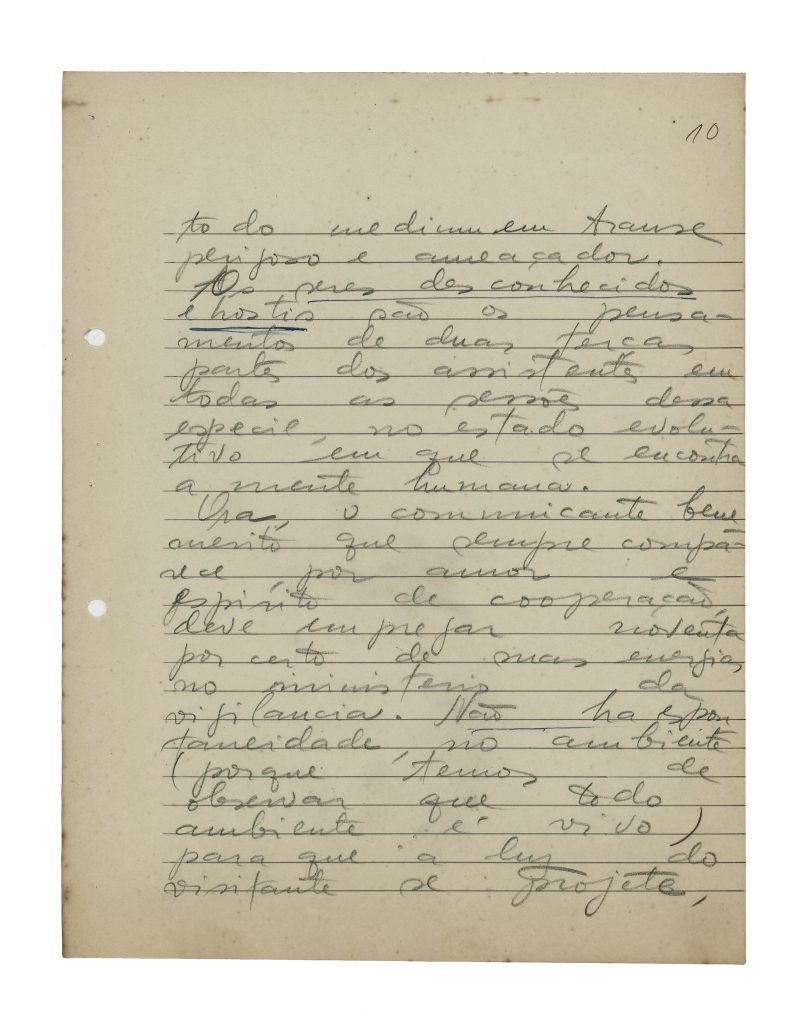 10
to do medium em transe
perigoso e ameaçador.
Os seres desconhecidos
e hostis são os pensa-
mentos de duas terças
partes dos assistentes em
todas as sessões dessa
especie, no estado evolu-
tivo em que se encontra
a mente humana.
Ora, o communicante bene
merito que sempre compa-
rece, por amor e
espirito de cooperação,
deve empregar noventa
por certo de suas energias
no ministerio da
vigilancia. Não ha espon
taneidade, no ambiente
(porque temos de
observar que todo
ambiente é vivo)
para que a luz do
visitante se projete,